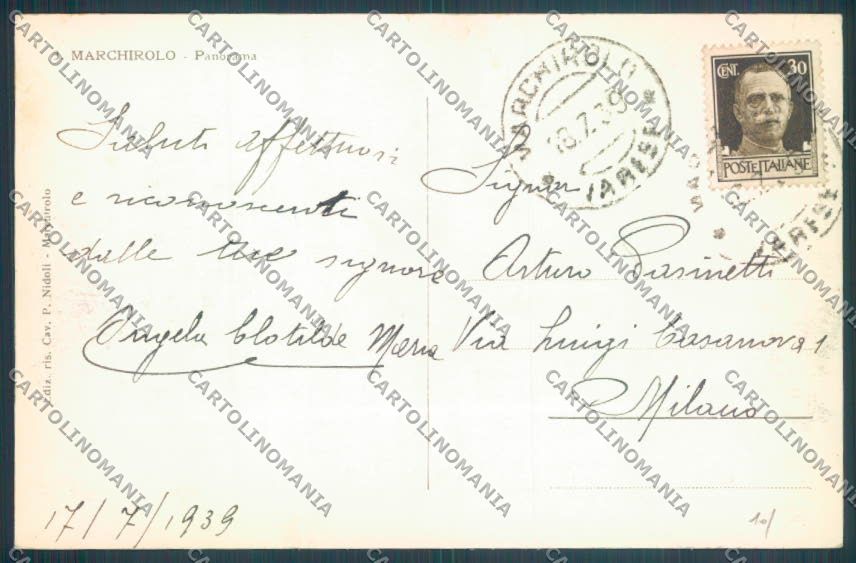 MARCHIROLO - Panorama
Ediz. ris. Cav. P. Nidoli - Marchirolo
Saluti affettuosi
e riconoscenti
dalle tue signore
Angela Clotilde Maria
17/7/1939
MARCHIROLO
18.7.39
VARESE
CENT. 30
POSTE ITALIANE
VARESE
Signor
Arturo Pasinetti
Via Luigi Casanova 1
Milano
10/
CARTOLINOMANIA